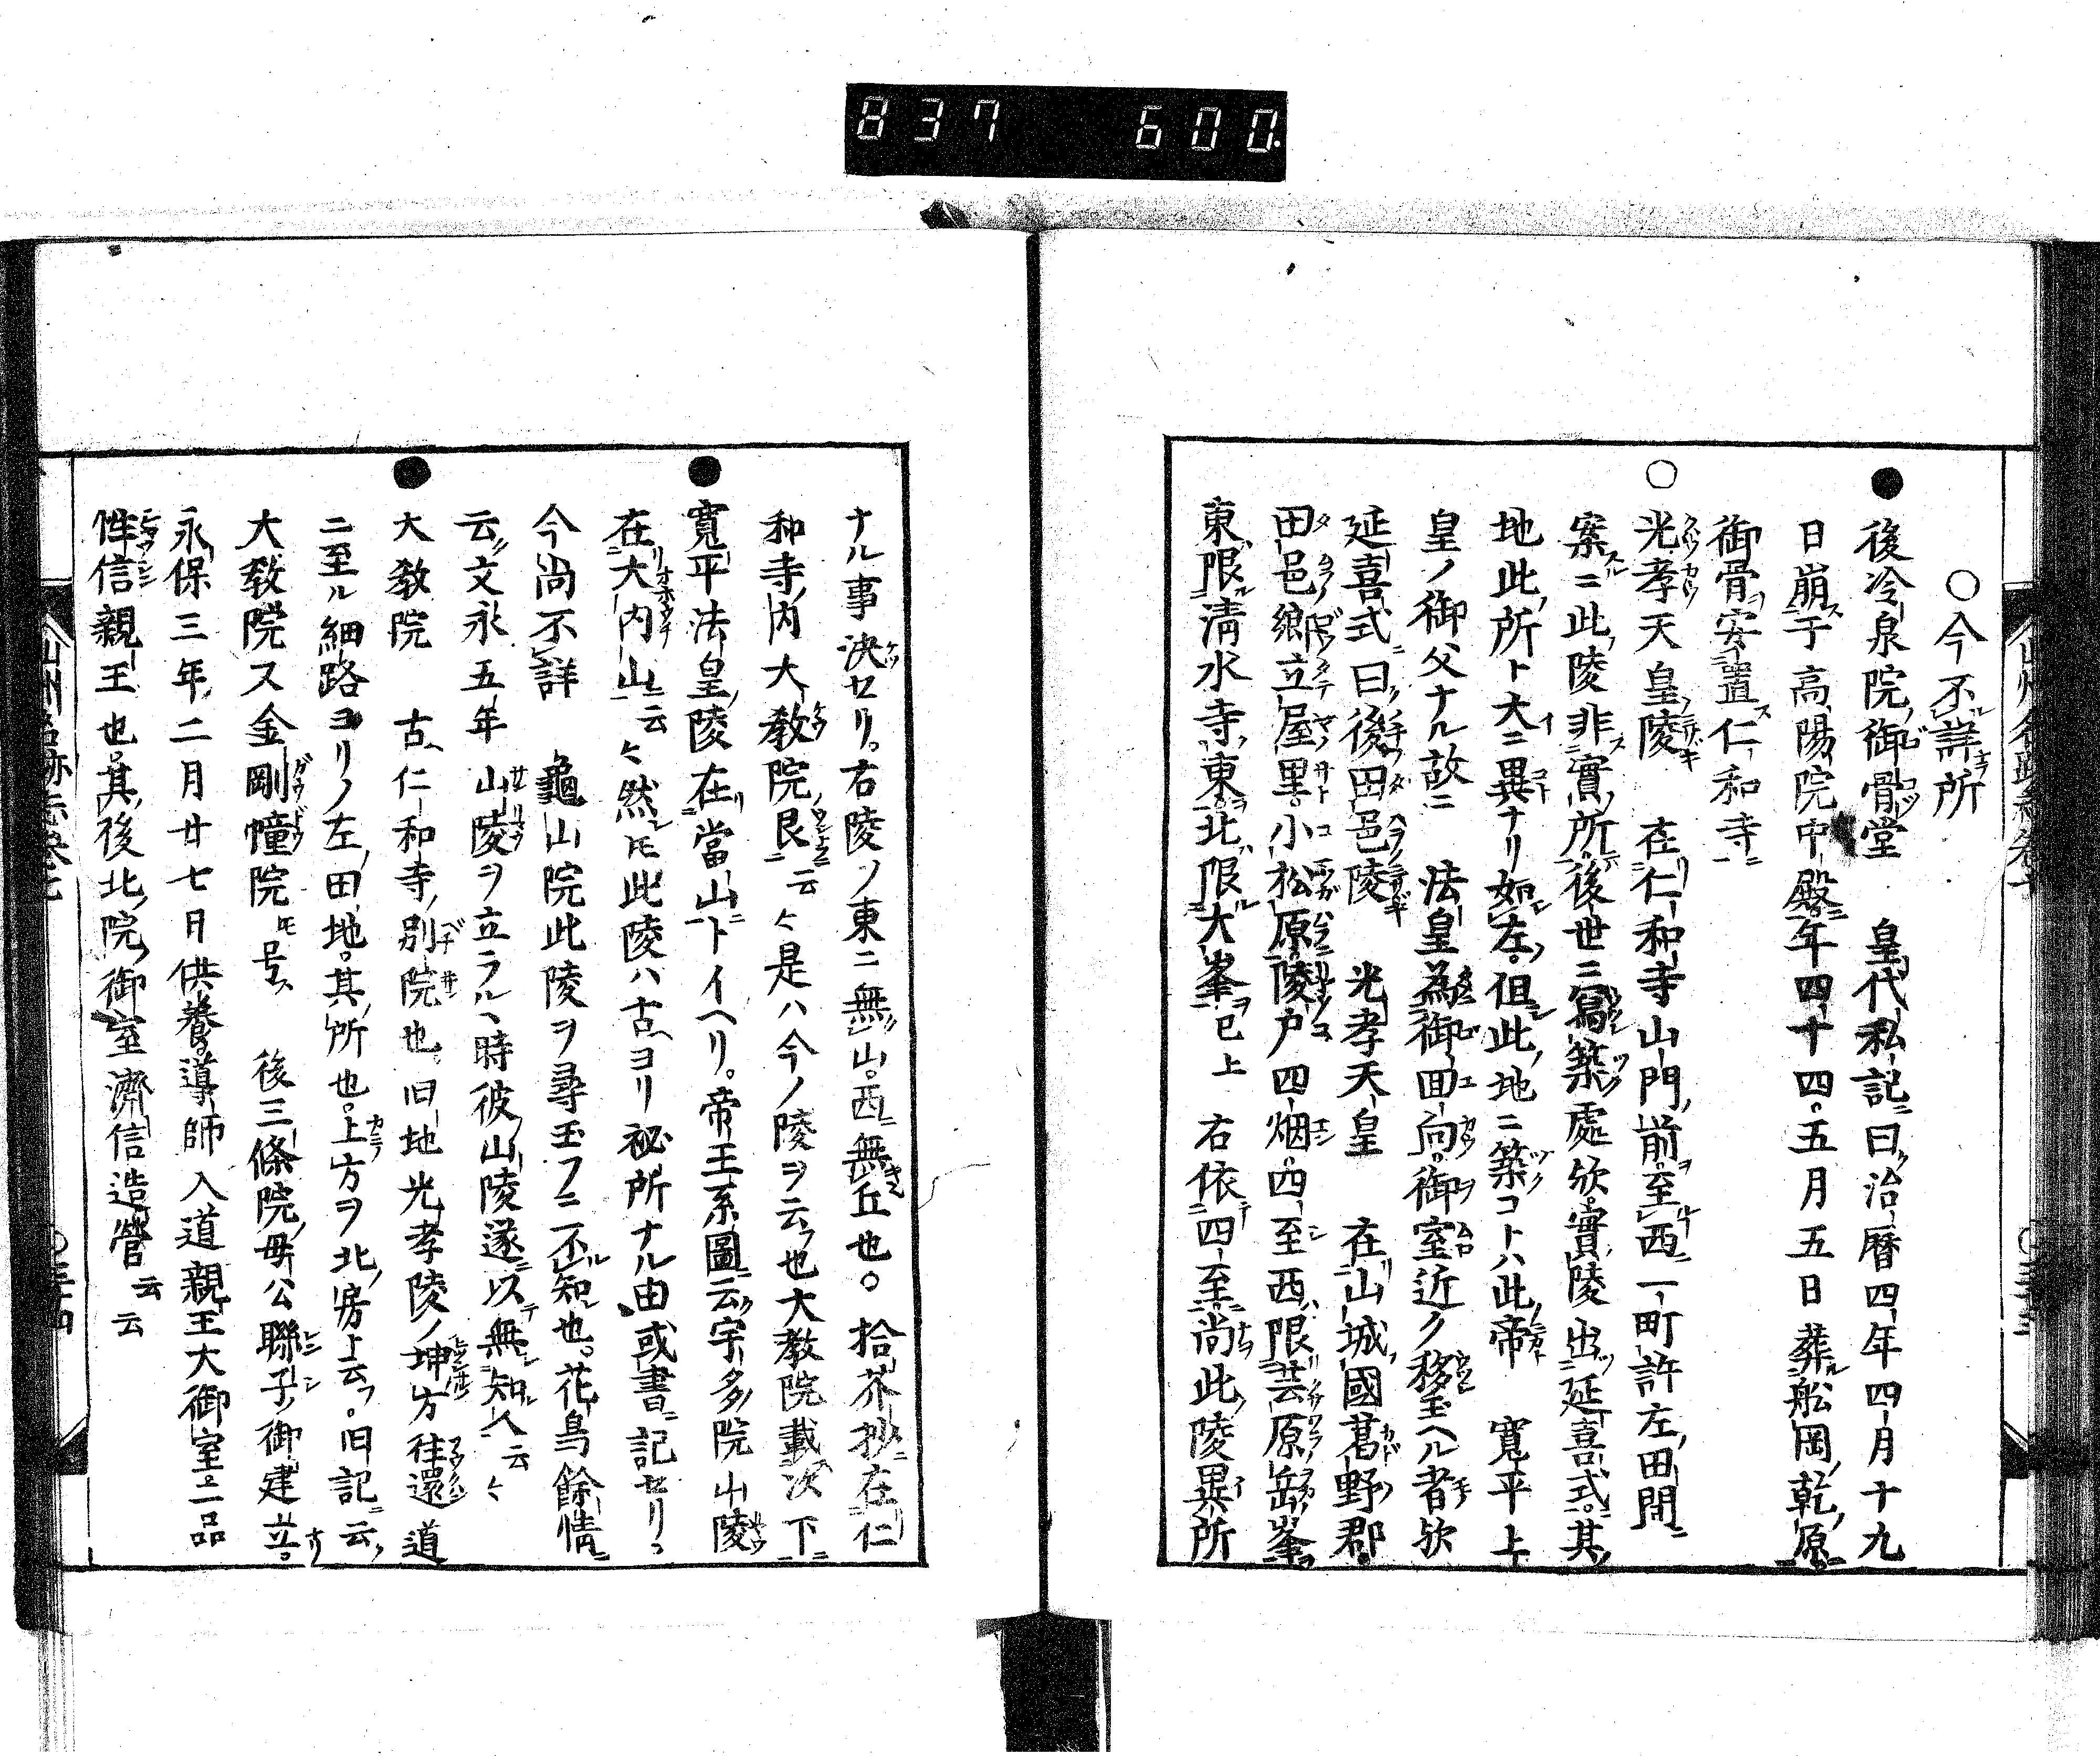 837 600.
〇今不詳所
●後冷泉院御骨堂 皇代私記曰治暦四年四月十九
日崩于高陽院中殿年四十四五月五日葬舩岡乾原
御骨安置仁和寺
○光孝天皇陵 在仁和寺山門前至西一町許左田間
案ニ此陵非實所後世ニ寫築處欤實陵出延喜式其
地此所ト大ニ異ナリ如左但此地ニ築コトハ此帝 寛平上
皇ノ御父ナル故ニ 法皇為御回向御室近ク移玉ヘル者欤
延喜式曰後田邑陵 光孝天皇 在山城國葛野郡
田邑郷立屋里小松原陵戸四烟四至西限芸原岳峯
東限清水寺東北限大峯已上 右依四至尚此陵異所
ナル事決セリ。右陵ノ東ニ無山。西無丘也。 拾芥抄在仁
和寺内大教院艮云々是ハ今ノ陵ヲ云也大教院載次下
●寛平法皇陵在當山トイヘリ。帝王系圖云宇多院山陵
在大内山云々然𪜈此陵ハ古ヨリ秘所ナル由或書記セリ
今尚不詳 龜山院此陵ヲ尋玉フニ不知也。花鳥餘情
云文永五年 山陵ヲ立ラルヽ時彼山陵遂以無知人云々
●大教院 古仁和寺別院也。旧地光孝陵ノ坤方往還道
ニ至ル細路ヨリノ左田地。其所也。上方ヲ北房ト云フ。旧記云
大教院ス金剛幢院𪜈号 後三條院母公聯子御建立。
永保三年二月廿七日供養。導師入道親王大御室二品
性信親王也。其後北院御室濟信造營云云